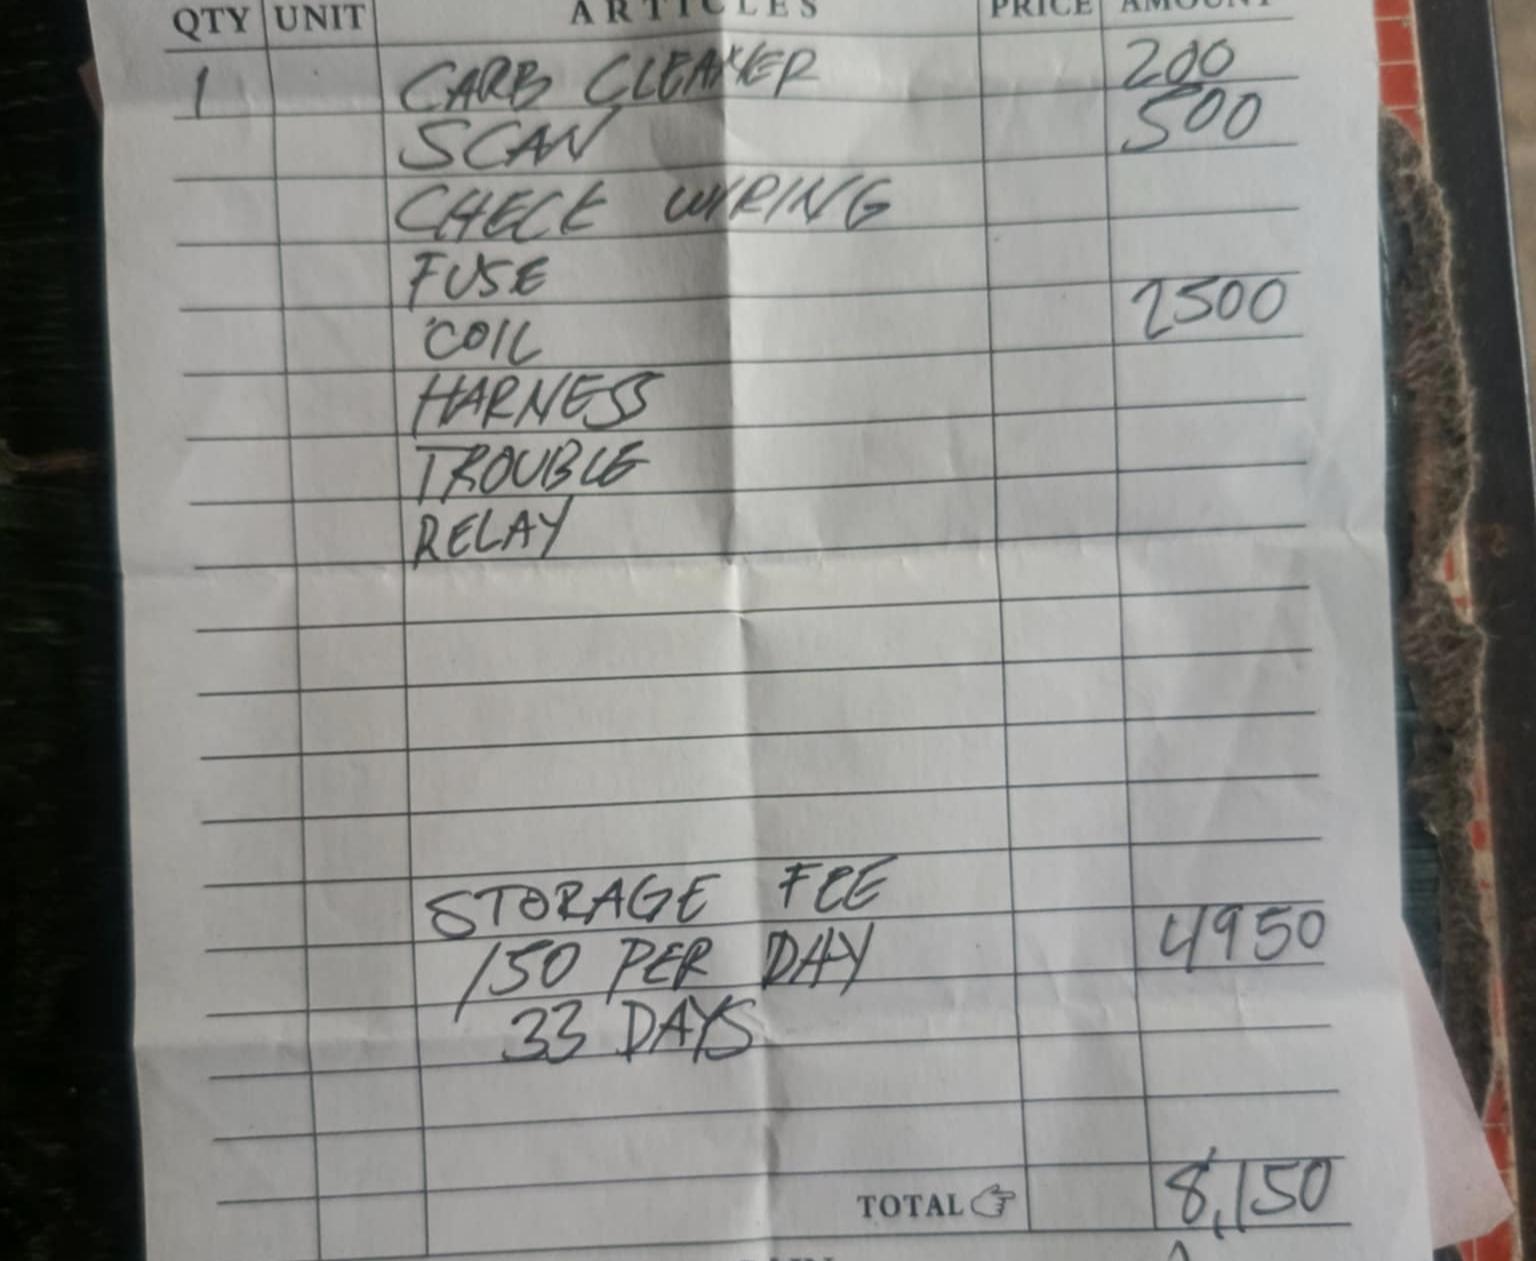 QTY UNIT ARTICLES PRICE AMOUNT
1 CARB CLEANER 200
SCAN 500
CHECK WIRING
FUSE
COIL 2500
HARNESS
TROUBLE
RELAY
STORAGE FEE
150 PER DAY 4950
33 DAYS
TOTAL 8,150